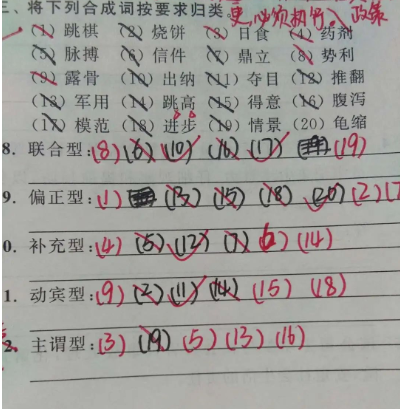 三、将下列合成词按要求归类
更必须执行 政策
(1) 跳棋 (2) 烧饼 (3) 日食 (4) 药剂
(5) 脉搏 (6) 信件 (7) 鼎立 (8) 势利
(9) 露骨 (10) 出纳 (11) 夺目 (12) 推翻
(13) 军用 (14) 跳高 (15) 得意 (16) 腹泻
(17) 模范 (18) 进步 (19) 情景 (20) 龟缩
8. 联合型:(8)(6)(10)(16)(17)(19)
9. 偏正型:(1)(13)(15)(18)(20)(2)(7
0. 补充型:(4)(5)(12)(7)6)(14)
1. 动宾型:(9)(2)(11)(14)(15)(18)
2. 主谓型:(3)(19)(5)(13)(16)